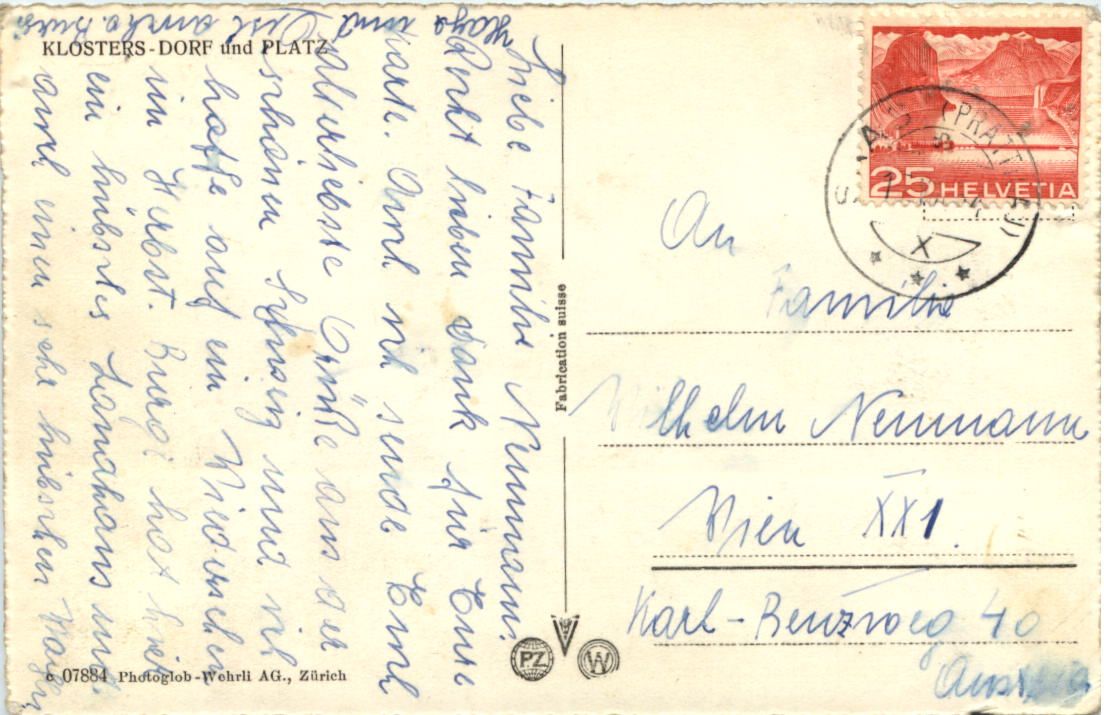 KLOSTERS-DORF und PLATZ
Liebe Familie Neumann.
Recht lieben Dank für Eure
Karte. Auch ich sende Euch
allerliebste Grüße aus der
schönen Schweiz und ich
hoffe auf ein Wiedersehen
im Herbst. Burgi hat hier
ein hübsches Landhaus und
auch einen sehr hübschen
und
Fabrication suisse
An
Familie
Wilhelm Neumann
Wien XXI.
Karl-Benzweg 40
Austria
25 HELVETIA
(PRÄTTIGAU)
X
PZ
W
c 07884 Photoglob-Wehrli AG., Zürich